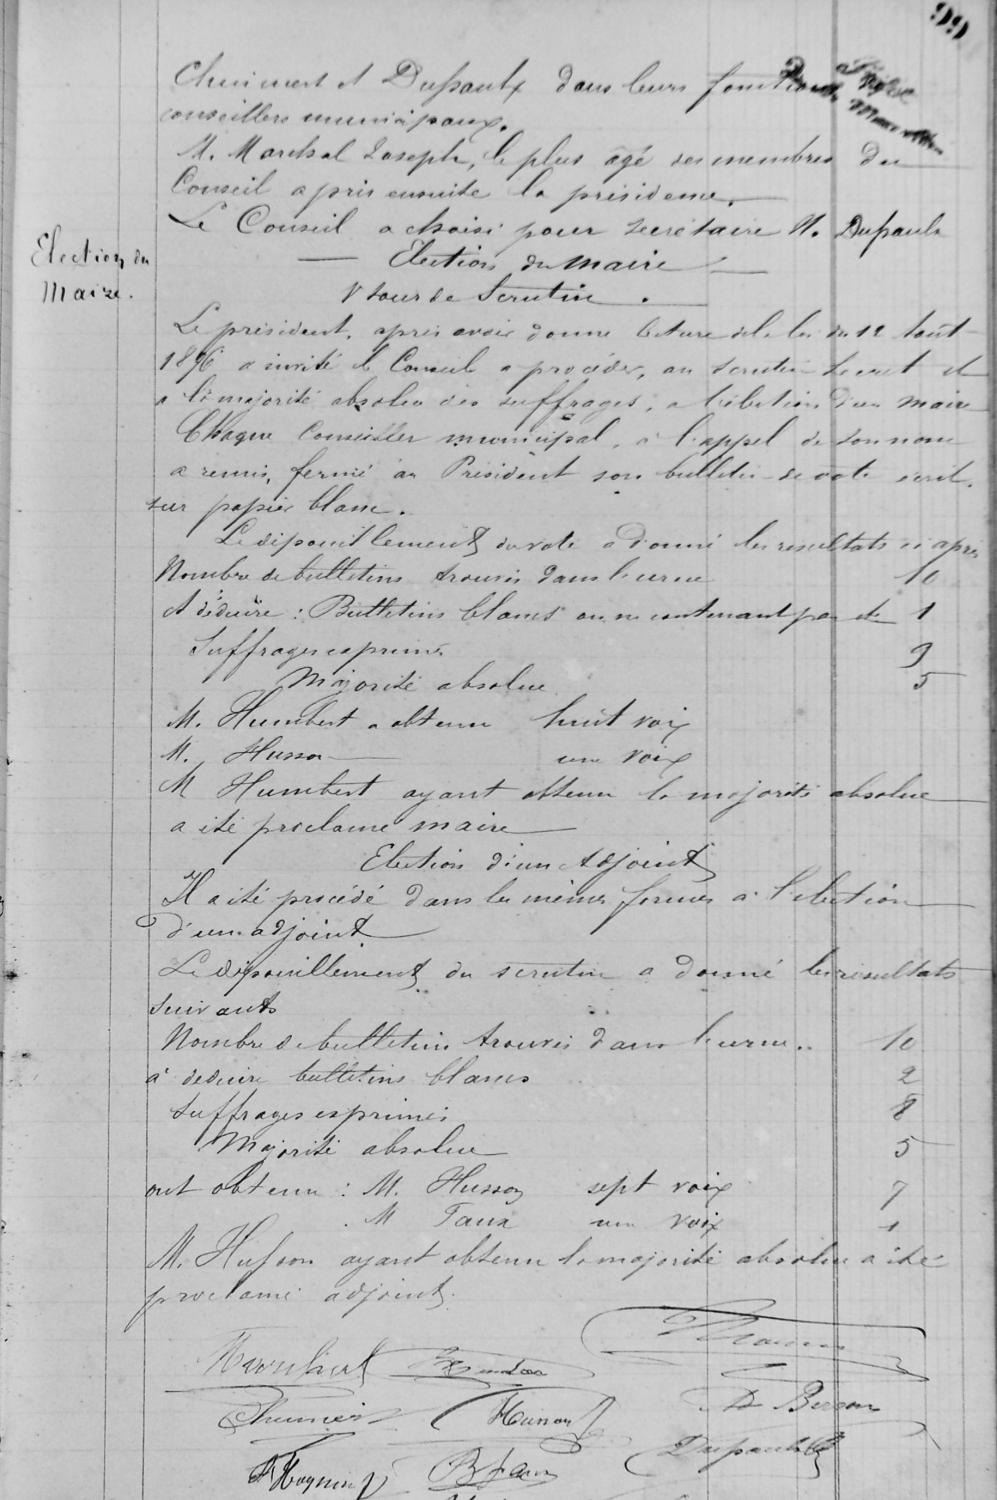 99
et Dupaulx dans leurs fonctions
conseillers municipaux.
M. Marchal Joseph, le plus agé des membres du
Conseil a pris ensuite la présidence.
Le Conseil a choisi pour secrétaire M. Dupaulx
Election du Maire.
— Election du maire —
1r tour de Scrutin.
Le président, apres avoir donné lecture de la loi du 12 Aout
1876 a invité le Conseil a procéder, au scrutin secret et
a la majorité absolue des suffrages, a l'élection d'un maire
Chaque Conseiller municipal, a l'appel de son nom
a remis, fermé au Président son bulletin de vote écrit
sur papier blanc.
Le dépouillement du vote a donné les resultats ci après
Nombre de bulletins trouvés dans l'urne 10
A déduire : Bulletins blancs ou ne contenant pas de 1
Suffrages exprimés 9
Majorité absolue 5
M. Humbert a obtenu huit voix
M. Husson une voix
M Humbert ayant obtenu la majorité absolue
a été proclamé maire
Election d'un Adjoint
Il a été procédé dans les mêmes formes a l'election
d'un adjoint
Le dépouillement du scrutin a donné les resultats
suivants
Nombre de bulletins trouvés dans l'urne .. 10
à deduire bulletins blancs 2
Suffrages exprimés 8
Majorité absolue 5
ont obtenu : M. Husson sept voix 7
M Taux une voix 1
M. Husson ayant obtenu la majorité absolue a été
proclamé adjoint.
Humbert
Husson
Dupaulx